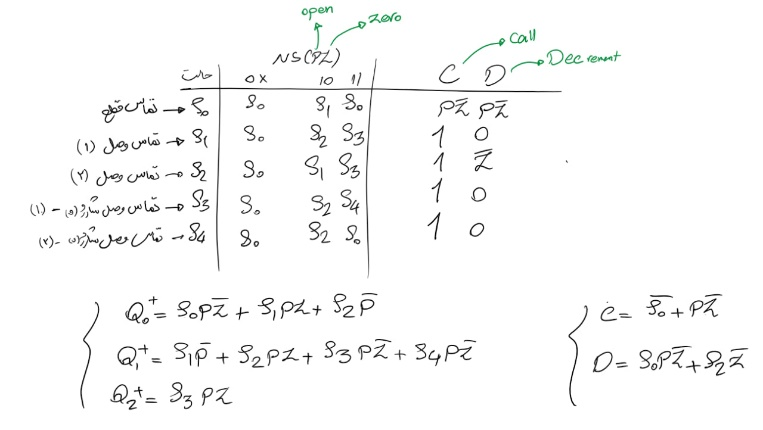 open
zero
NS(PZ)
Call
Decrement
حالت 0x 10 11 C D
تماس قطع → S₀ S₀ S₁ S₀ PZ̅ PZ̅
تماس وصل (1) → S₁ S₀ S₂ S₃ 1 0
تماس وصل (2) → S₂ S₀ S₁ S₃ 1 Z̅
تماس وصل شارژ (0) - (1) → S₃ S₀ S₂ S₄ 1 0
تماس وصل شارژ (0) - (2) → S₄ S₀ S₂ S₀ 1 0
Q₀⁺ = S₀PZ̅ + S₁PZ + S₂P̅
Q₁⁺ = S₁P̅ + S₂PZ + S₃PZ̅ + S₄PZ̅
Q₂⁺ = S₃PZ
C = S̅₀ + PZ̅
D = S₀PZ̅ + S₂Z̅